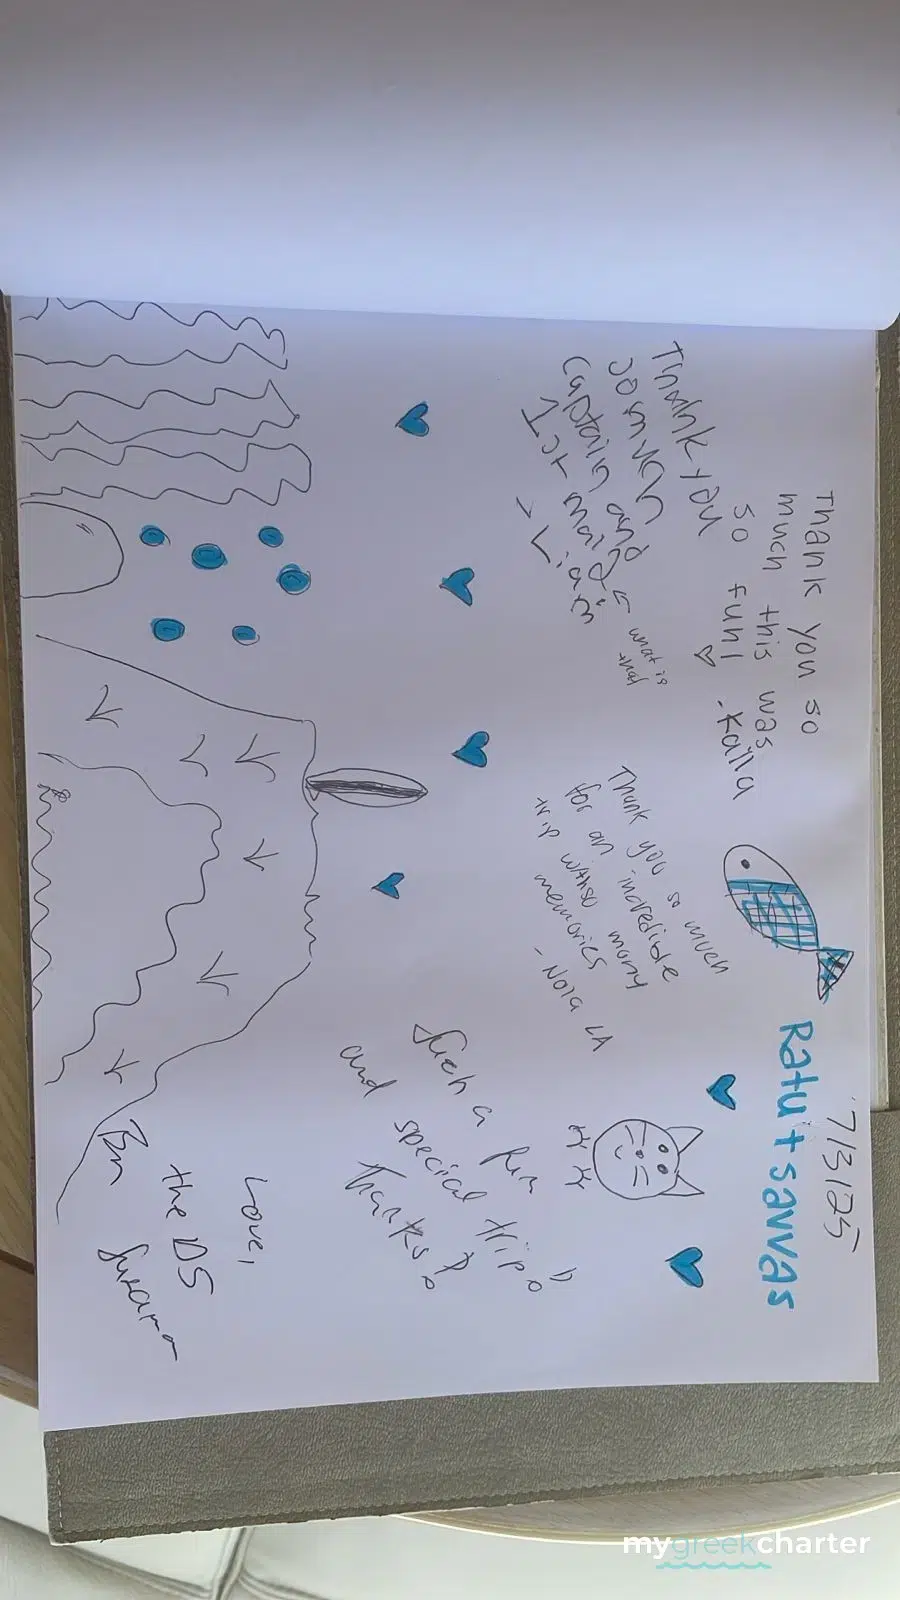 7/3/25
Ratu + Savvas
Thank you so
much this was
so fun! ♡
- Kaila
Thank you
so much
captain and
- Liam
what is
that
Thank you so much
for an incredible
trip with so many
memories
- Nola LA
Such a fun
and special trip!
Thanks!
Love,
the DS
mygreekcharter